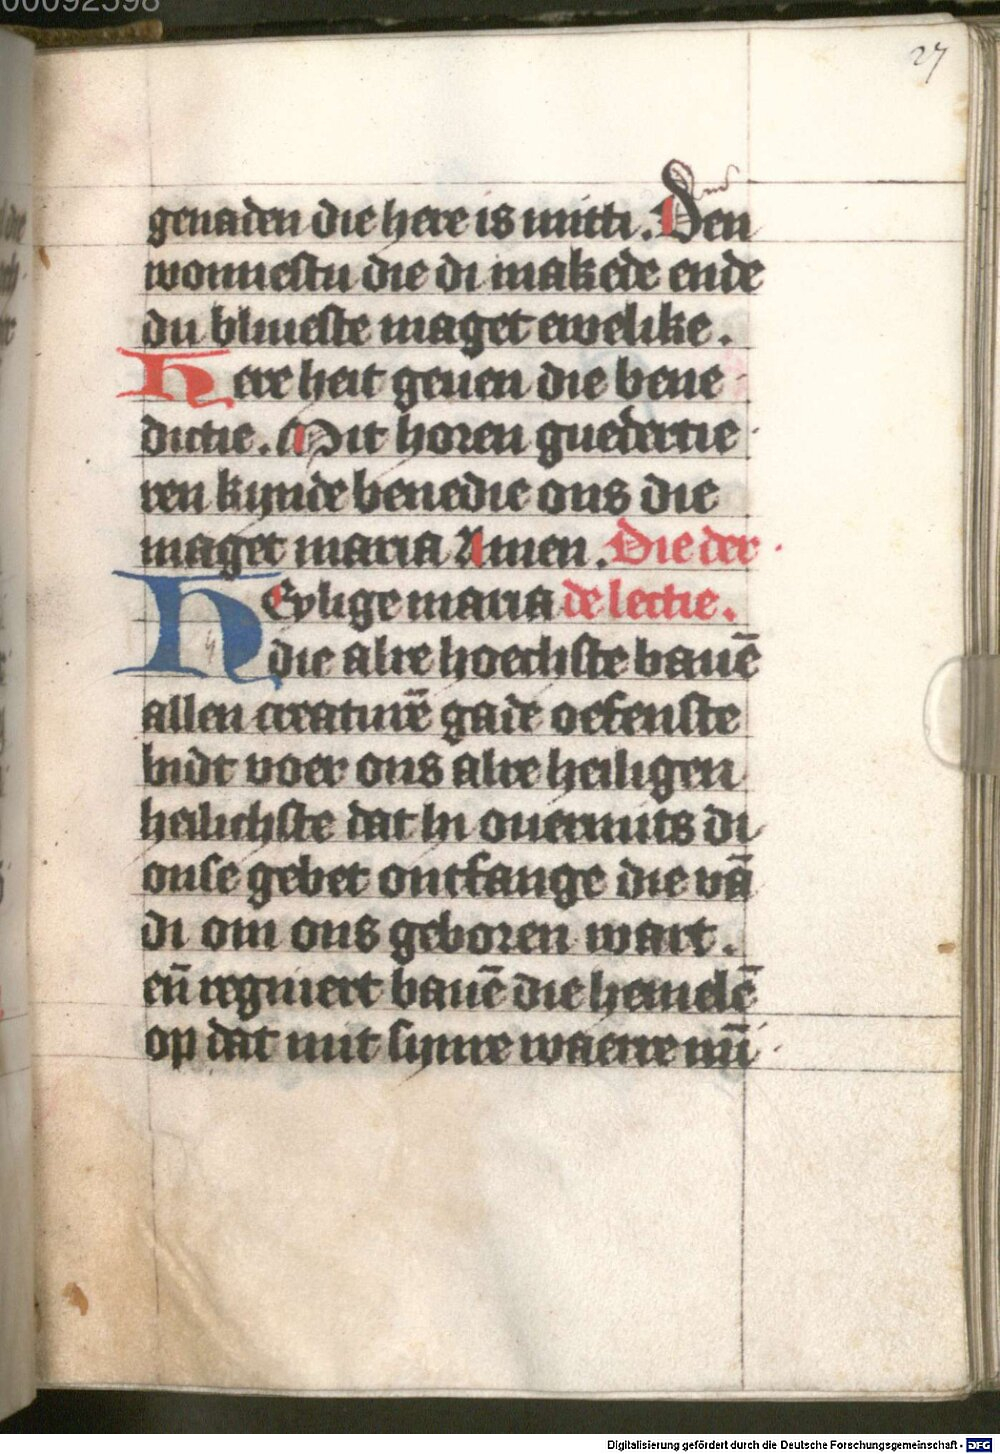 00092598
27
genaden die here is mitti. Den
wonnestu die di makede ende
du bliueste maget ewelike.
Here heit geuen die bene
dictie. Mit horen guedertie
ren kynde benedie ons die
maget maria Amen. Die der
HEylige maria de lectie.
die alre hoechste bauē
allen creaturē gade oefenste
bidt voer ons alre heiligen
heilichste dat hi ouermits di
onse gebet ontfange die vā
di om ons geboren wart.
eñ regniert bauē die hemelē
op dat mit synre waerre mī
Digitalisierung gefördert durch die Deutsche Forschungsgemeinschaft - DFG